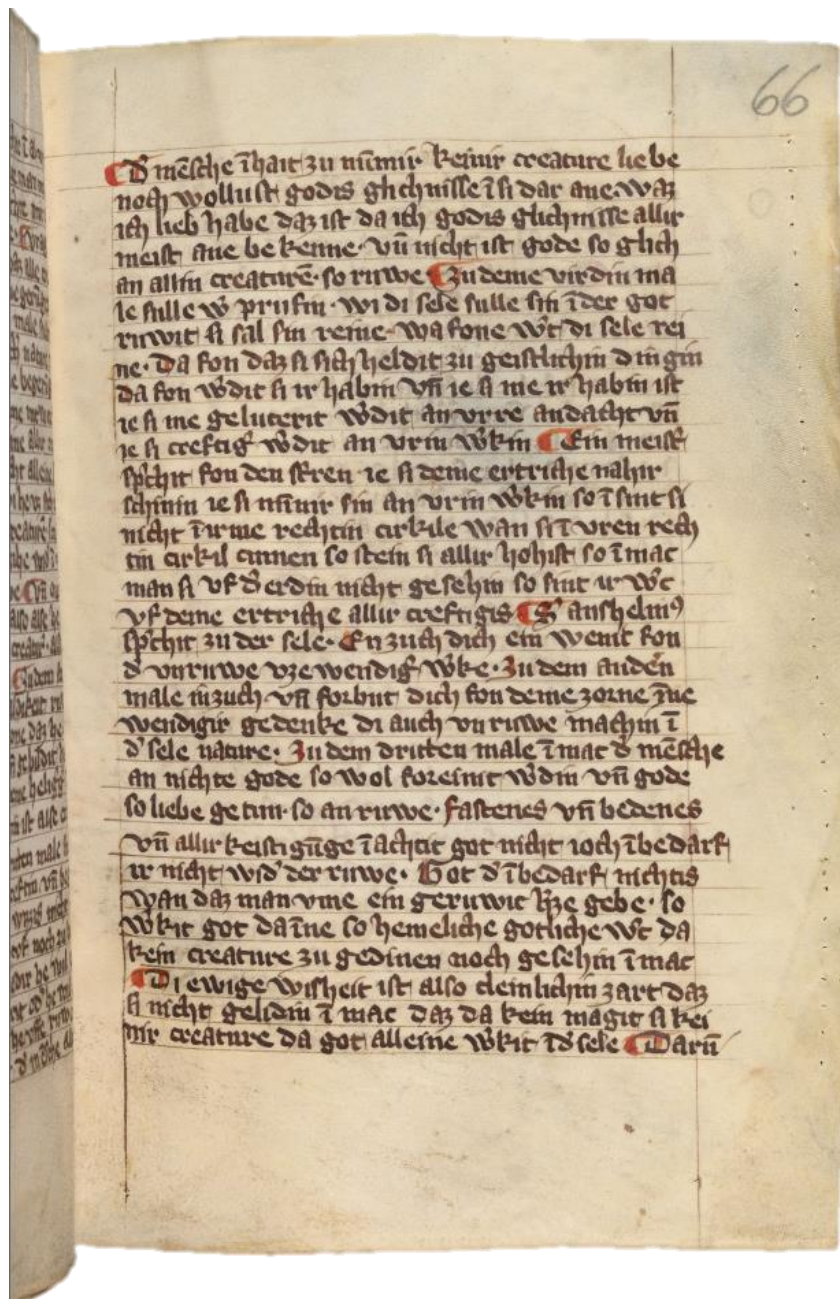 66
¶D͛ mēsche īhait zu nūmir keinir creature liebe
noch wollust godis glichnisse ī si dar ane waz
ich lieb habe daz ist da ich godis glichnisse allir
meist ane bekenne· vn̄ nicht ist gode so glich
an allin creaturē· so ruwe ¶Zu deme virdin ma
le sulle w͛ prufin· wi di sele sulle sin ī der got
ruwit si sal sin reine· wa fone w͛t di sele rei
ne· Da fon daz si sich heldit zu geistlichin dingin
da fon w͛dit si ir habin vn̄ ie si me ir habin ist
ie si me geluterit w͛dit an vrre andacht vn̄
ie si creftig͛ w͛dit an vrin w͛kin ¶Ein meist͛
sp͛chit fon den st͛ren ie si deme ertriche nahir
schinin ie si nīnnir sin an vrin w͛kin so ī sint si
nicht ī irme rechtin cirkile wan si ī vren rech
tin cirkil cumen so stein si allir hohist so ī mac
man si vf d͛ erdin nicht gesehin so sint ir w͛c
vf deme ertriche allir creftigis ¶S͛ anshelmꝰ
sp͛chit zu der sele· Enzuch dich ein wenit fon
d͛ vnruwe vzewendig͛ w͛ke· Zu dem anden̄
male inzuch vn̄ forbirt dich fon deme zorne īne
wendigir gedenke di auch vnruwe machin ī
d͛ sele nature· Zu dem dritten male ī mac d͛ mēsche
an nichte gode so wol foreinit w͛din vn̄ gode
so liebe getun· so an ruwe· fastenes vn̄ bedenes
vn̄ allir keistigūge ī achtit got nicht ioch ī bedarf
ir nicht wid͛ der ruwe· Got d͛ ī bedarf nichtis
wan daz man vme ein geruwit h͛ze gebe· so
w͛kit got da īne so hemeliche gotliche w͛c da
kein creature zu gedinen noch gesehin ī mac
¶Di ewige wisheit ist also cleinlichin zart daz
si nicht gelidin ī mac daz da kein magit si kei
nir creature da got alleine w͛kit ī d͛ sele ¶Darū